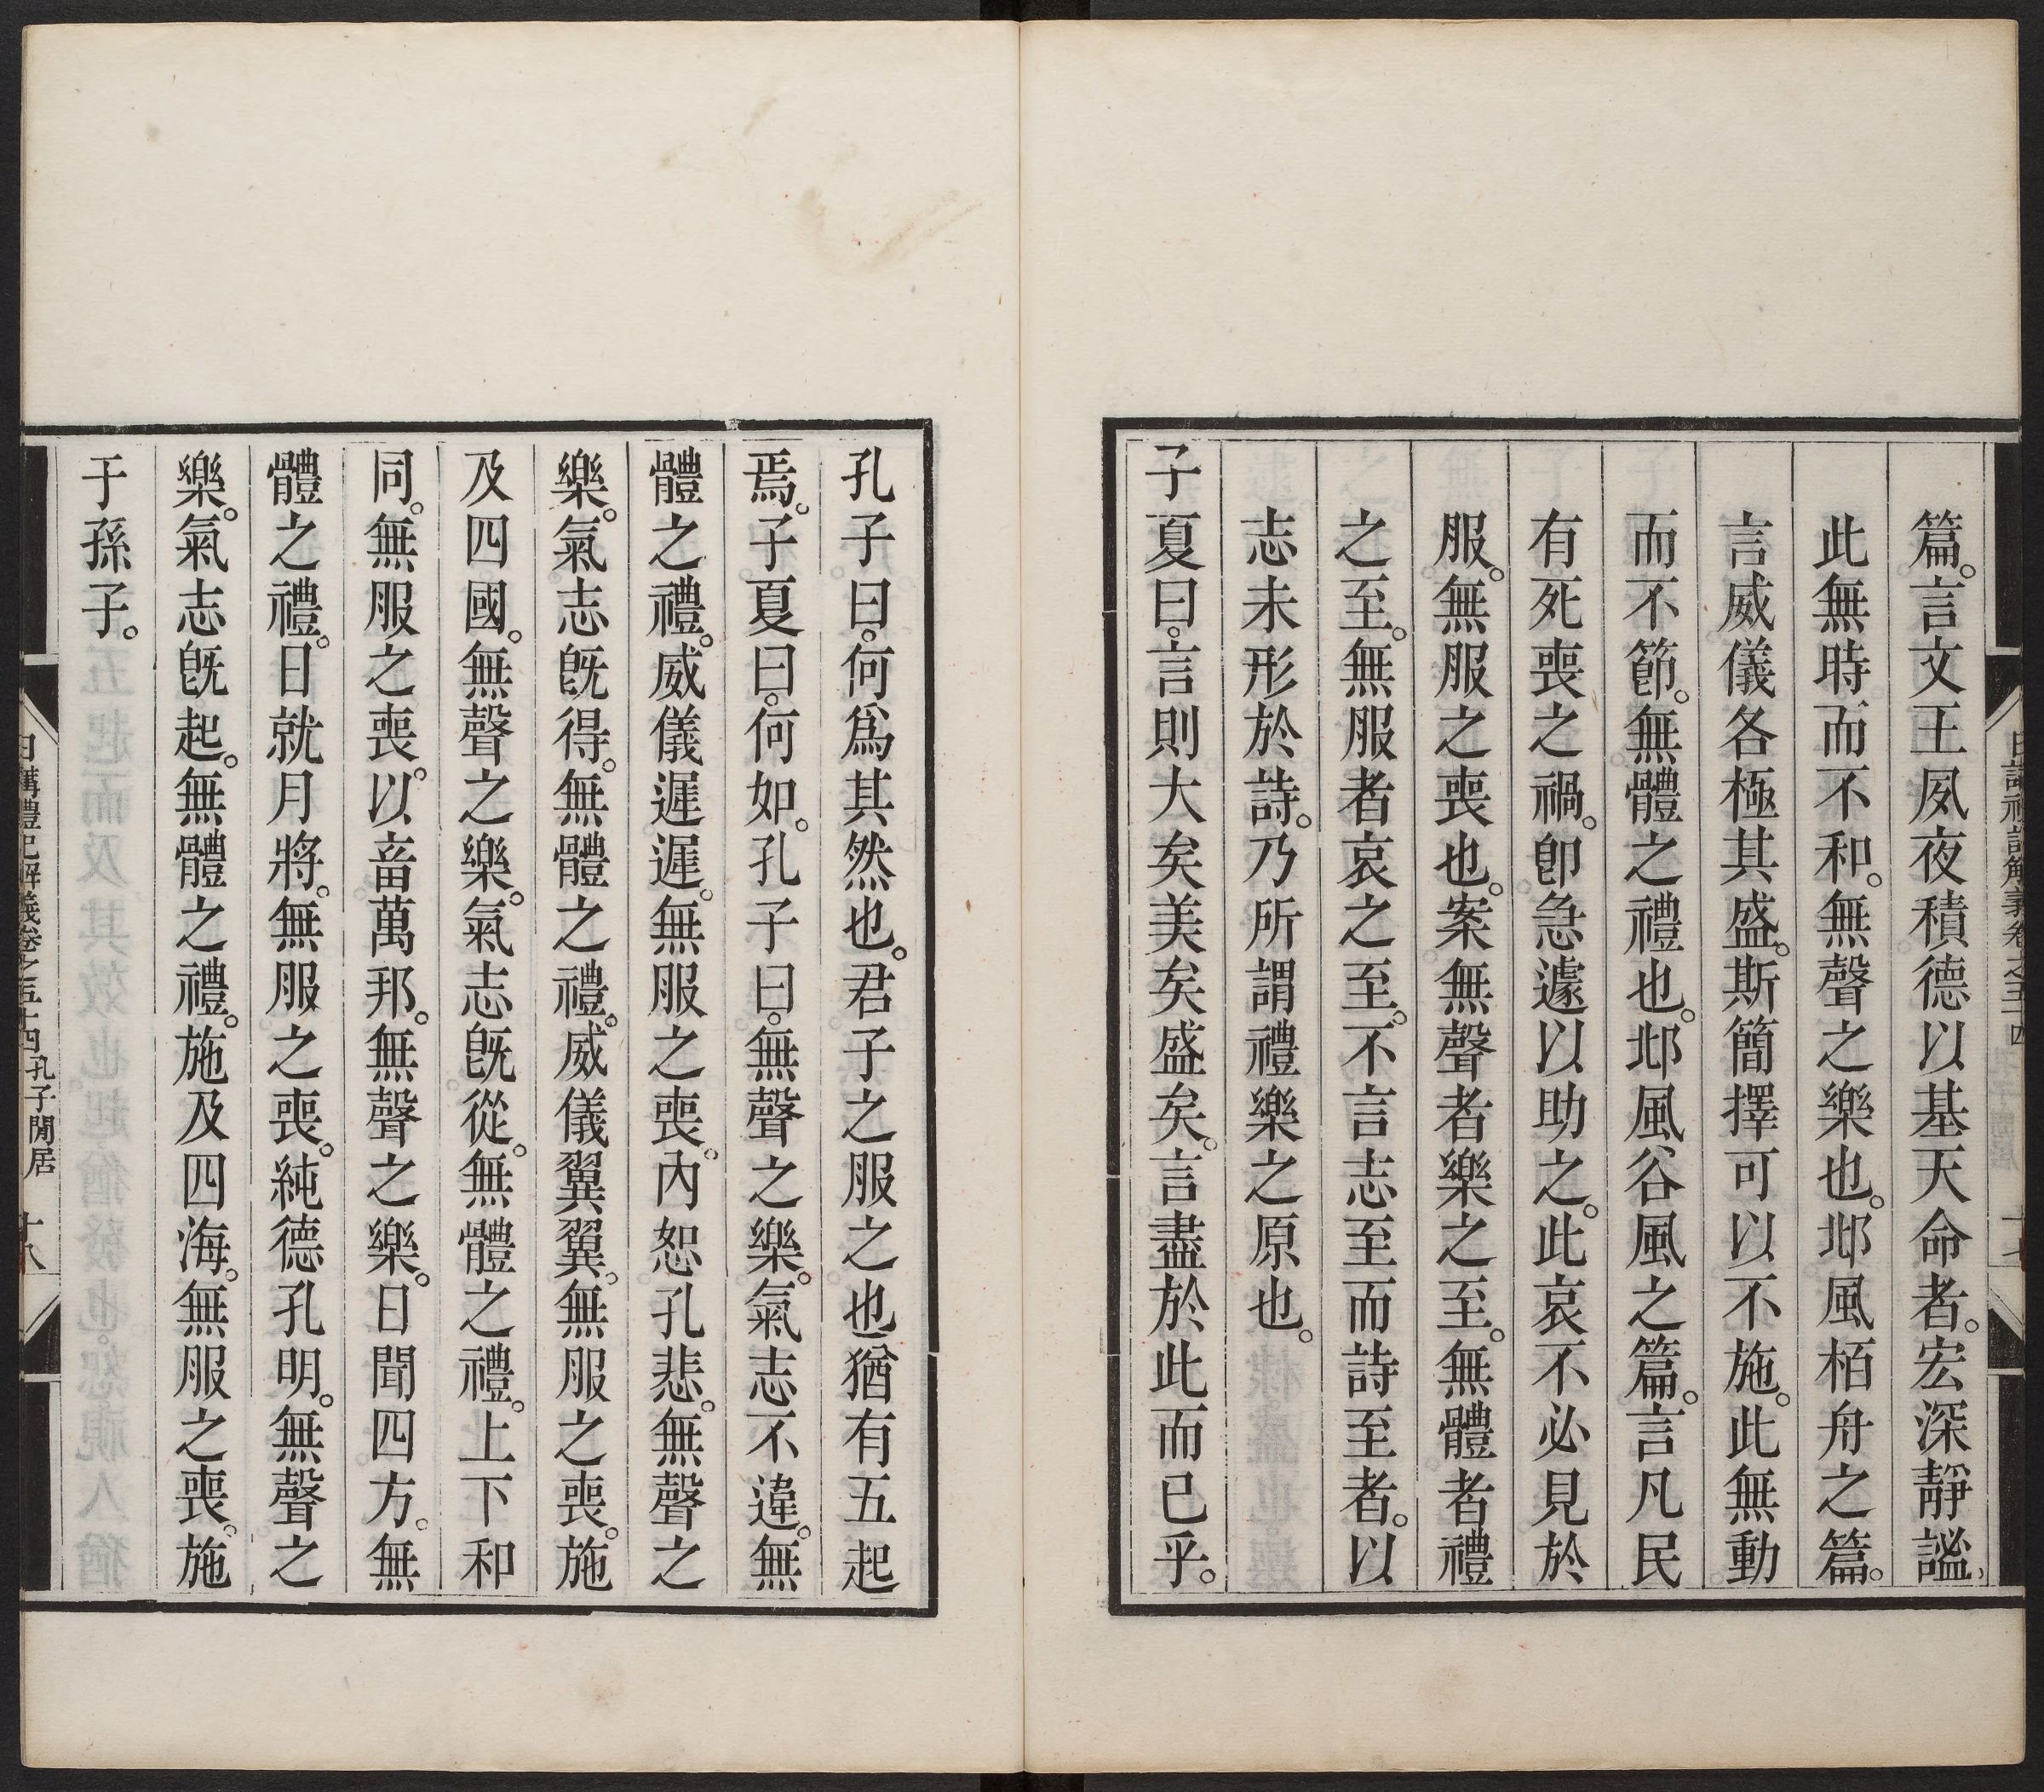 篇。言文王夙夜積德以基天命者。宏深靜謐、
此無時、而不和。無聲之樂也。邶風栢舟之篇。
言威儀各極其盛。斯簡擇可以不施。此無動
而不節。無體之禮也。邶風、谷風之篇。言凡民
有死喪之禍。卽急遽以助之。此哀不必見於
服。無服之喪也。案無聲者樂之至。無體者禮
之至。無服者哀之至。不言志至而詩至者。以
志未形於詩。乃所謂禮樂之原也。
子夏曰。言則大矣美矣盛矣。言盡於此而已乎。
日講禮記解義卷之五十四
孔子曰。何爲其然也。君子之服之也、猶有五起
焉。子夏曰。何如。孔子曰。無聲之樂。氣志不違。無
體之禮。威儀遲遲。無服之喪。內恕孔悲。無聲之
樂。氣志旣得。無體之禮。威儀翼翼。無服之喪。施
及四國。無聲之樂。氣志旣從。無體之禮。上下和
同。無服之喪。以畜萬邦。無聲之樂。日聞四方。無
體之禮。日就月將。無服之喪。純德孔明。無聲之
樂。氣志旣起。無體之禮。施及四海。無服之喪。施
于孫子。
日講禮記解義卷之五十四 孔子閒居 十八